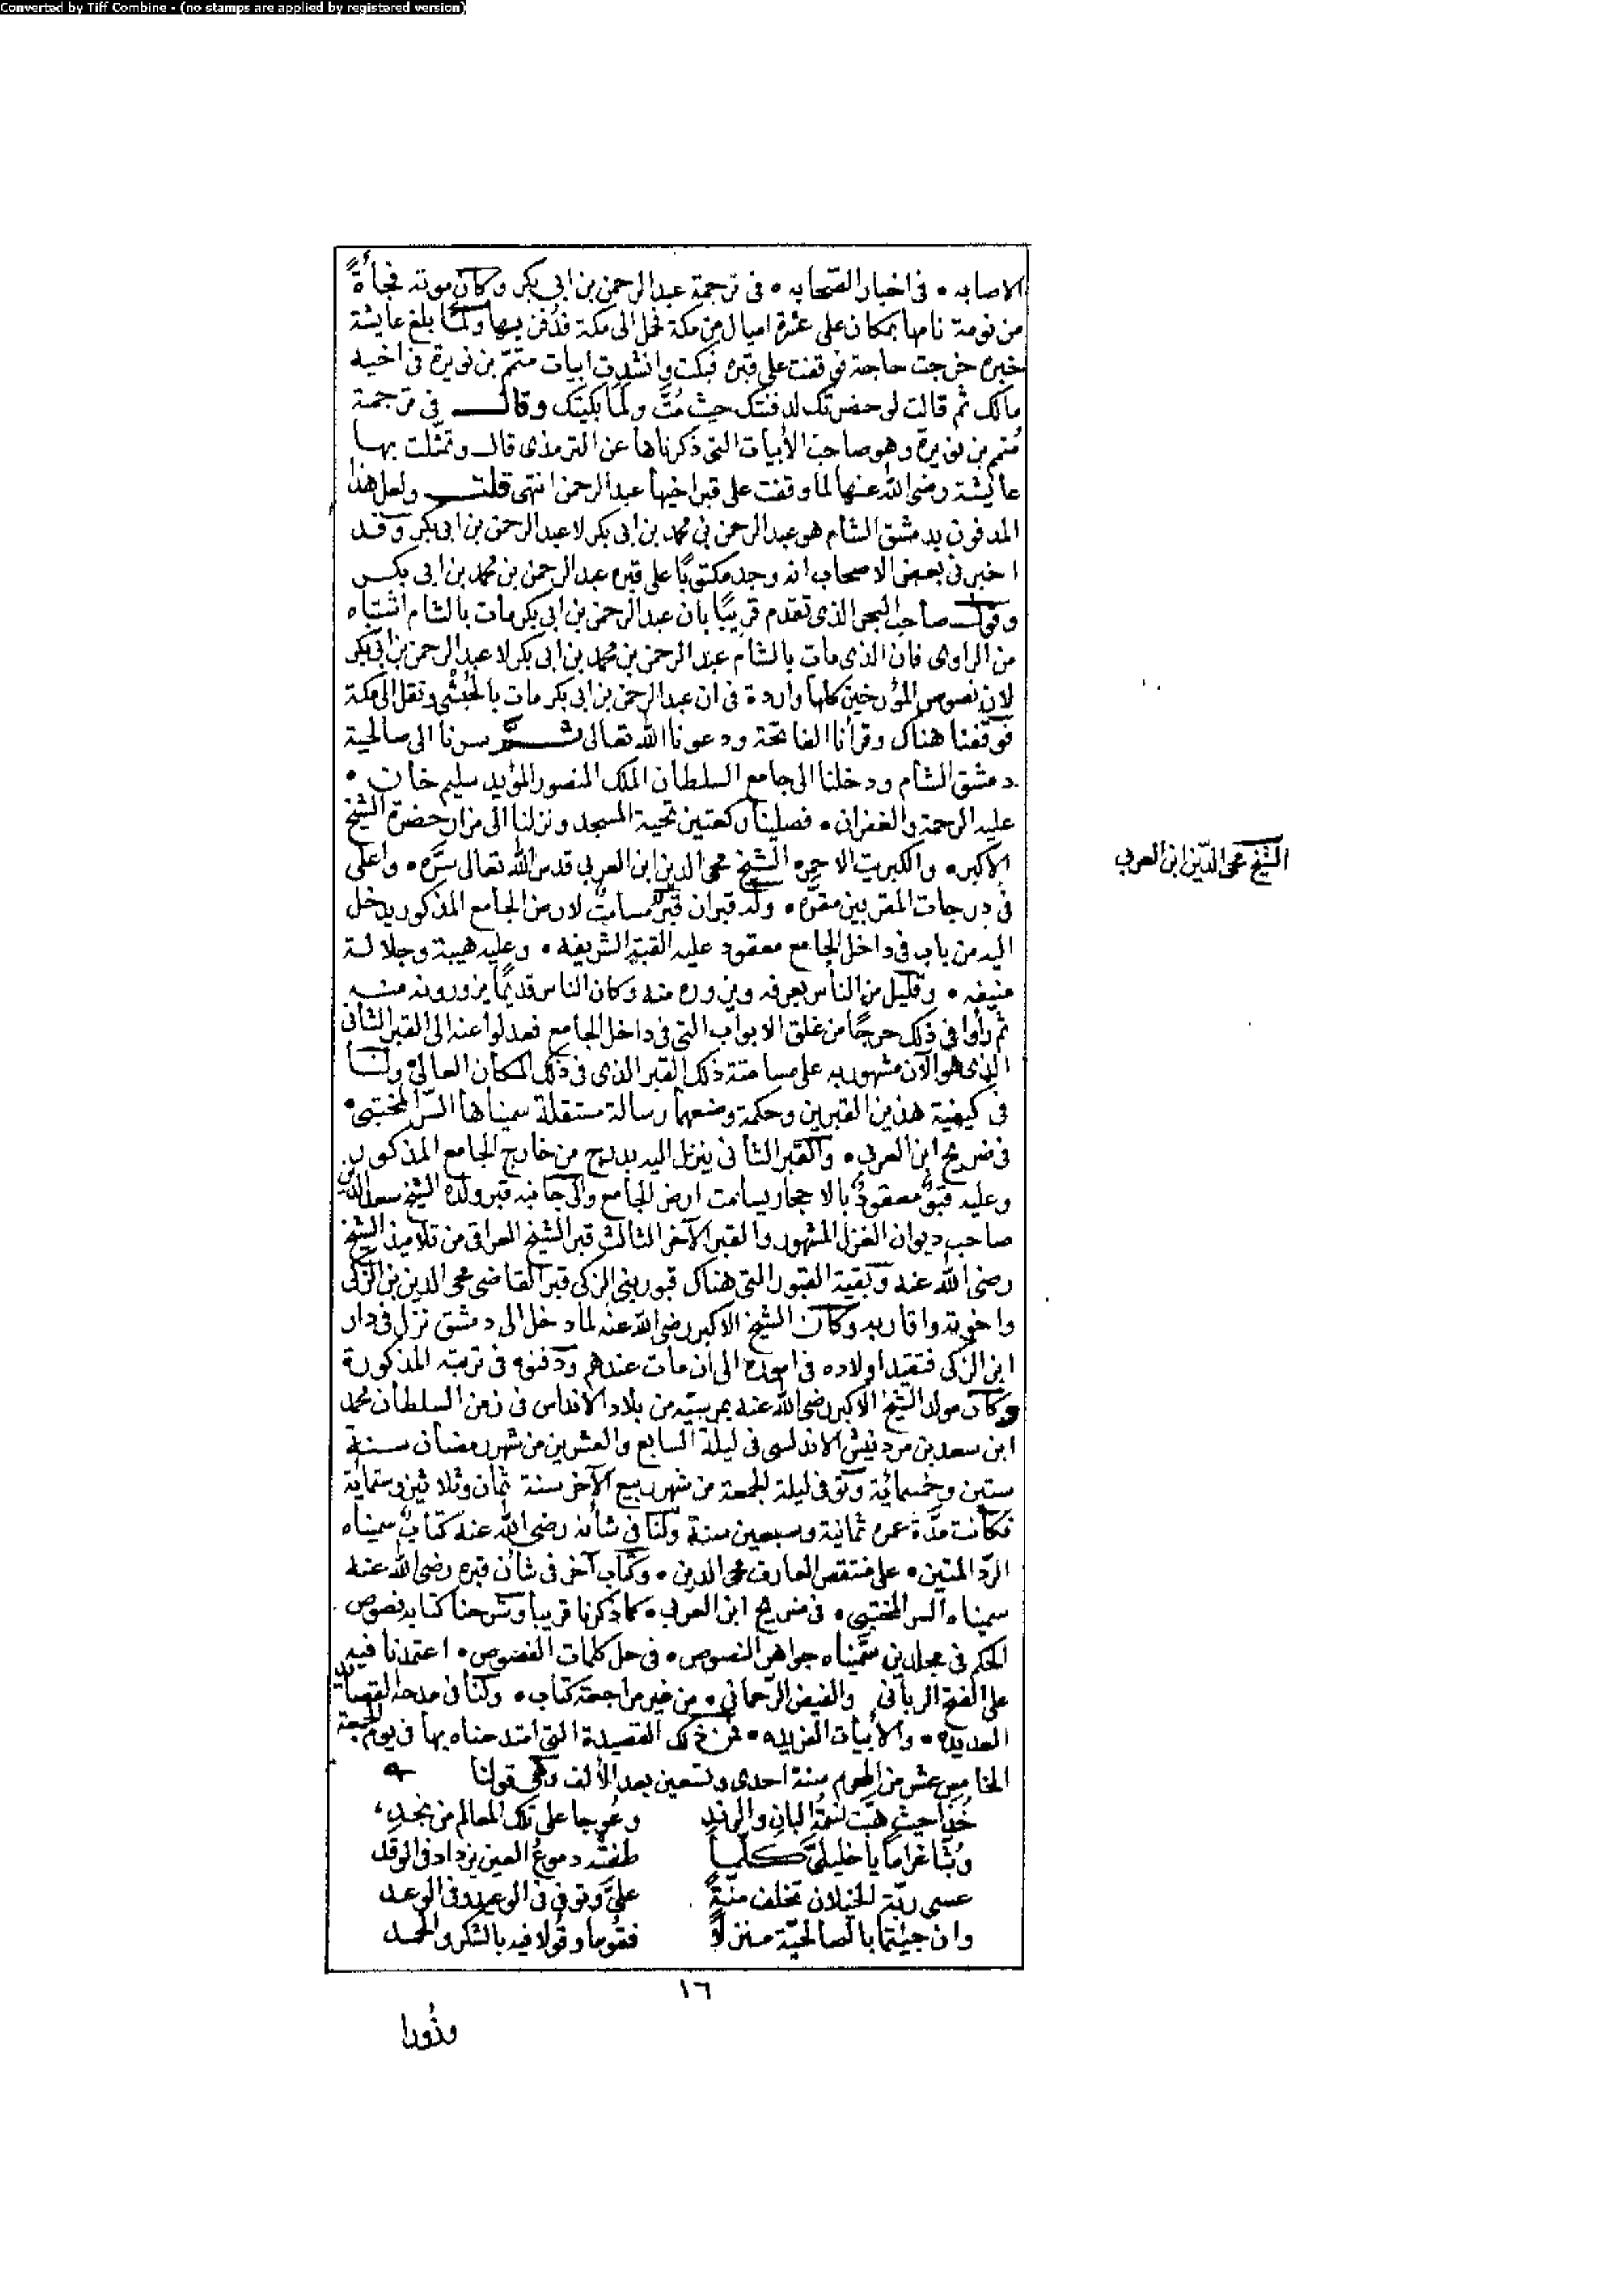 Converted by Tiff Combine - (no stamps are applied by registered version)
الاصابه • فى اخبار الصّحابه • فى ترجمة عبد الرحمن بن ابى بكر وكان موته فجأةً
من نومة نامها بمكان على عشرة اميال من مكة فحمل الى مكة فدُفن بها ولمّا بلغ عايشة
خبره خرجت حاجة فوقفت على قبره فبكت وانشدت ابيات متمّم بن نويرة فى اخيه
مالك ثم قالت لو حضرتك لدفنتك حيث مُتَّ ولما بكيتك وقال فى ترجمة
مُتمم بن نويرة وهو صاحب الأبيات التى ذكرناها عن الترمذى قال وتمثّلت بها
عايشة رضى الله عنها لما وقفت على قبر اخيها عبد الرحمن انتهى قلت ولعل هذا
المدفون بدمشق الشام هو عبد الرحمن بن محمد بن ابى بكر لا عبد الرحمن بن ابى بكر وقد
اخبرنى بعض الاصحاب انه وجد مكتوبًا على قبره عبد الرحمن بن محمد بن ابى بكر
وقول صاحب البحر الذى تقدم قريبًا بان عبد الرحمن بن ابى بكر مات بالشام اشتباه
من الراوى فان الذى مات بالشام عبد الرحمن بن محمد بن ابى بكر لا عبد الرحمن بن ابى بكر
لان نصوص المؤرخين كلها واردة فى ان عبد الرحمن بن ابى بكر مات بالحُبْشى ونقل الى مكة
فوقفنا هناك وقرأنا الفاتحة ودعونا الله تعالى ثم سرنا الى صالحية
دمشق الشام ودخلنا الى جامع السلطان الملك المنصور المؤيد سليم خان •
عليه الرحمة والغفران • فصلينا ركعتين تحية المسجد ونزلنا الى مزار حضرة الشيخ
الاكبر • والكبريت الاحمر • الشيخ محى الدين ابن العربى قدس الله تعالى سرّه • واعلى
فى درجات المقربين مقرّه • وله قبران قبر مسامتٌ لارض الجامع المذكور يدخل
اليه من باب فى داخل الجامع معقود عليه القبة الشريفه • وعليه هيبة وجلالة
منيفه • وقليل من الناس يعرفه ويزوره منه وكان الناس قديمًا يزورونه منه
ثم رأوا فى ذلك حرجًا من غلق الابواب التى فى داخل الجامع فعدلوا عنه الى القبر الثانى
الذى هو الآن مشهور به على مسامتة ذلك القبر الذى فى ذلك المكان العالى ولنا
فى كيفية هذين القبرين وحكمة وضعهما رسالة مستقلة سميناها السّر المختبى •
فى ضريح ابن العربى • والقبر الثانى ينزل اليه بدرج من خارج الجامع المذكور
وعليه قبوٌ معقودٌ بالاحجار يسامت ارض الجامع والى جانبه قبر ولده الشيخ سعد الدين
صاحب ديوان الغزل المشهور والقبر الآخر الثالث قبر الشيخ العراقى من تلاميذ الشيخ
رضى الله عنه وبقية القبور التى هناك قبور بنى الزكى قبر القاضى محى الدين بن الزكى
واخوته واقاربه وكان الشيخ الاكبر رضى الله عنه لما دخل الى دمشق نزل فى دار
ابن الزكى فتقيد اولاده فى اموره الى ان مات عندهم ودفنوه فى تربته المذكورة
وكان مولد الشيخ الاكبر رضى الله عنه بمرسية من بلاد الاندلس فى زمن السلطان محمد
ابن سعد بن مردنيش الاندلسى فى ليلة السابع والعشرين من شهر رمضان سنة
ستين وخمسمائة وتوفى ليلة الجمعة من شهر ربيع الآخر سنة ثمان وثلاثين وستمائة
فكانت مدّة عمره ثمانية وسبعين سنة ولنا فى شأنه رضى الله عنه كتاب سميناه
الردّ المتين • على منتقص العارف محى الدين • وكتاب آخر فى شأن قبره رضى الله عنه
سميناه السر المختبى • فى ضريح ابن العربى • كما ذكرنا قريبا وشرحنا كتابه فصوص
الحكم فى مجلدين سمّيناه جواهر النصوص • فى حل كلمات الفصوص • اعتمدنا فيه
على الفتح الربانى والفيض الرّحمانى • من غير مراجعة كتاب • ولنا فى مدحه القصائد
العديدة • والأبيات الفريده • فمن ذلك القصيدة التى امتدحناه بها فى يوم الجمعة
الخامس عشر من المحرم سنة احدى وتسعين بعد الألف وهى قولنا
خُذا حيث هبّت نسمةُ البان والرندِ وعُوجا على تلك المعالم من نجدِ
وبُثّا غراما يا خليلىَّ كلّما طفتْه دموع العين يزداد فى الوقد
عسى ربّة الخلان تخلف منّةً علىَّ وتوفى فى الوعيد وفى الوعد
وان جئتما بالصالحيّة منزلاً فقوما وقُولا فيه بالشكر والحمد
١٦
وذُورا
الشيخ محى الدّين ابن العربى